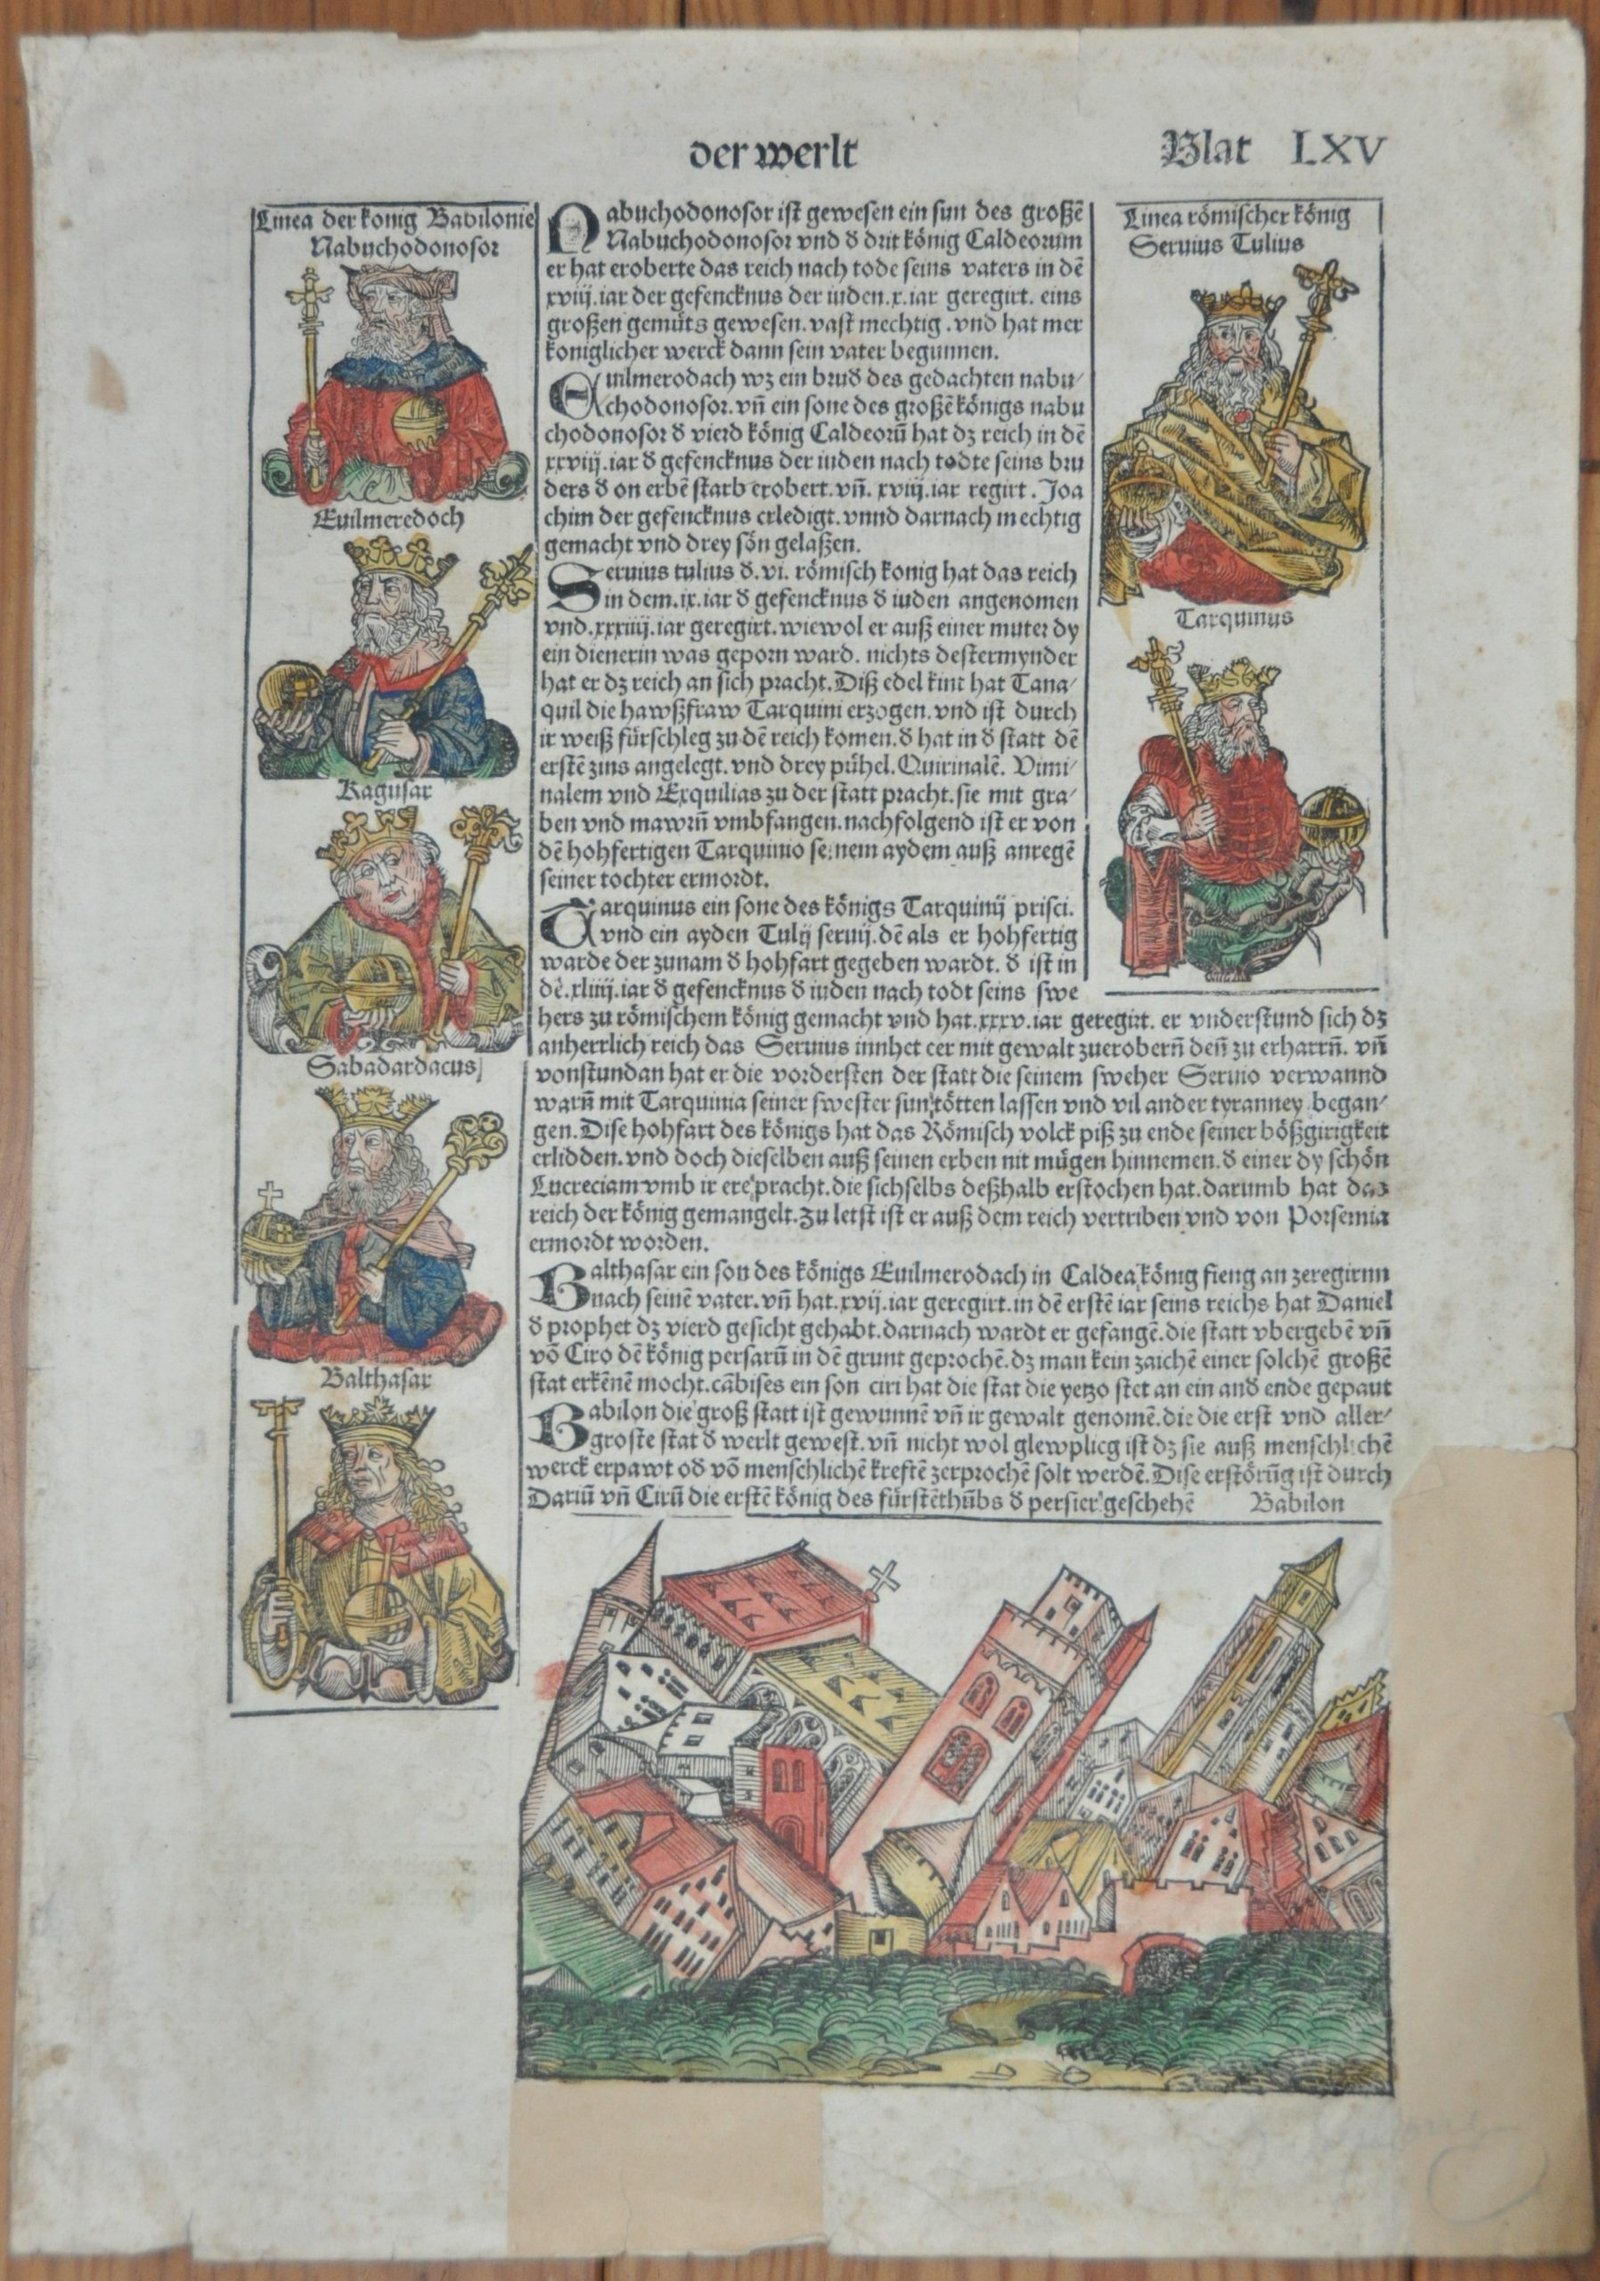 der werlt
Blat LXV
Linea der konig Babilonie
Nabuchodonosor
Euilmeredoch
Kagusar
Sabadardacus
Balthasar
Nabuchodonosor ist gewesen ein sun des großē
Nabuchodonosor vnd d drit könig Caldeorum
er hat eroberte das reich nach tode seins vaters in dē
xviij.iar der gefencknus der iuden.x.iar geregirt. eins
großen gemüts gewesen.vast mechtig.vnd hat mer
koniglicher werck dann sein vater begunnen.
Euilmerodach wz ein brud des gedachten nabu/
chodonosor.vñ ein sone des großē königs nabu
chodonosor d vierd könig Caldeorū hat dz reich in dē
xxviij.iar d gefencknus der iuden nach todte seins bru
ders d on erbē starb erobert.vñ. xviij.iar regirt. Joa
chim der gefencknus erledigt.vnnd darnach mechtig
gemacht vnd drey sön gelaßen.
Seruius tulius d.vi. römisch konig hat das reich
in dem.ix.iar d gefencknus d iuden angenomen
vnd.xxxiiij.iar geregirt.wiewol er auß einer muter dy
ein dienerin was geporn ward. nichts destermynder
hat er dz reich an sich pracht.Diß edel kint hat Tana/
quil die hawßfraw Tarquini erzogen.vnd ist durch
ir weiß fürschleg zu dē reich komen.d hat in d statt dē
erstē zins angelegt.vnd drey pühel.Quirinalē. Vimi/
nalem vnd Exquilias zu der statt pracht.sie mit gra/
ben vnd mawrñ vmbfangen.nachfolgend ist er von
dē hohfertigen Tarquinio seinem aydem auß anregē
seiner tochter ermordt.
Tarquinus ein sone des königs Tarquinij prisci.
vnd ein ayden Tulij seruij.dē als er hohfertig
warde der zunam d hohfart gegeben wardt. d ist in
dē.xliiij.iar d gefencknus d iuden nach todt seins swe
hers zu römischem könig gemacht vnd hat.xxxv.iar geregirt. er vnderstund sich dz
anherrlich reich das Seruius innhet eer mit gewalt zuerobern̄ den̄ zu erharrn̄. vñ
vonstundan hat er die vordersten der statt die seinem sweher Seruio verwannd
warn̄ mit Tarquinia seiner swester sun tötten lassen vnd vil ander tyranney began/
gen.Dise hohfart des königs hat das Römisch volck piß zu ende seiner bößgirigkeit
erlidden.vnd doch dieselben auß seinen erben nit mügen hinnemen.d einer dy schön
Lucreciam vmb ir ere pracht.die sichselbs deßhalb erstochen hat.darumb hat das
reich der könig gemangelt.zu letst ist er auß dem reich vertriben vnd von Porsemia
ermordt worden.
Balthasar ein son des königs Euilmerodach in Caldea könig fieng an zeregirnn
nach seinē vater.vñ hat.xvij.iar geregirt.in dē erstē iar seins reichs hat Daniel
d prophet dz vierd gesicht gehabt.darnach wardt er gefangē.die statt vbergebē vñ
vō Ciro dē könig persarū in dē grunt geprochē.dz man kein zaichē einer solchē großē
stat erkēnē mocht.cābises ein son ciri hat die stat die yetzo stet an ein and ende gepaut
Babilon die groß statt ist gewunnē vñ ir gewalt genomē.die die erst vnd aller/
groste stat d werlt gewest.vñ nicht wol glewplicg ist dz sie auß menschlichē
werck erpawt od vō menschlichē kreftē zerprochē solt werdē.Dise erstörūg ist durch
Dariū vñ Cirū die erstē könig des fürstēthūbs d persier geschehē Babilon
Linea römischer könig
Seruius Tulius
Tarquinus